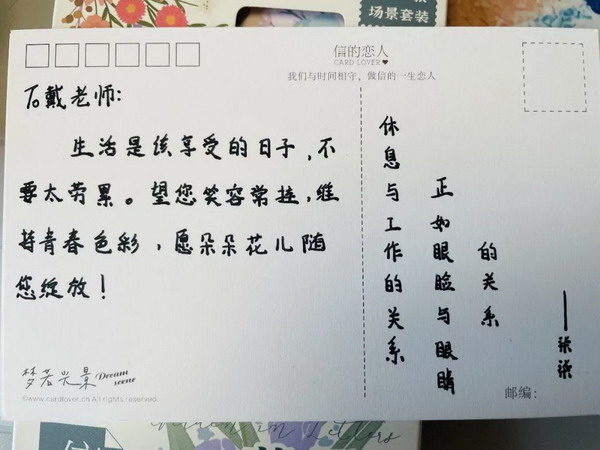 场景套装
信的恋人
CARD LOVER♥
我们与时间相守，做信的一生恋人
To戴老师：
生活是该享受的日子，不
要太劳累。望您笑容常挂，维
持青春色彩，愿朵朵花儿随
您绽放！
休息与工作的关系
正如眼睑与眼睛
的关系
梦若光景 Dream scene
©www.cardlover.cn All rights reserved.
邮编：
in Letters